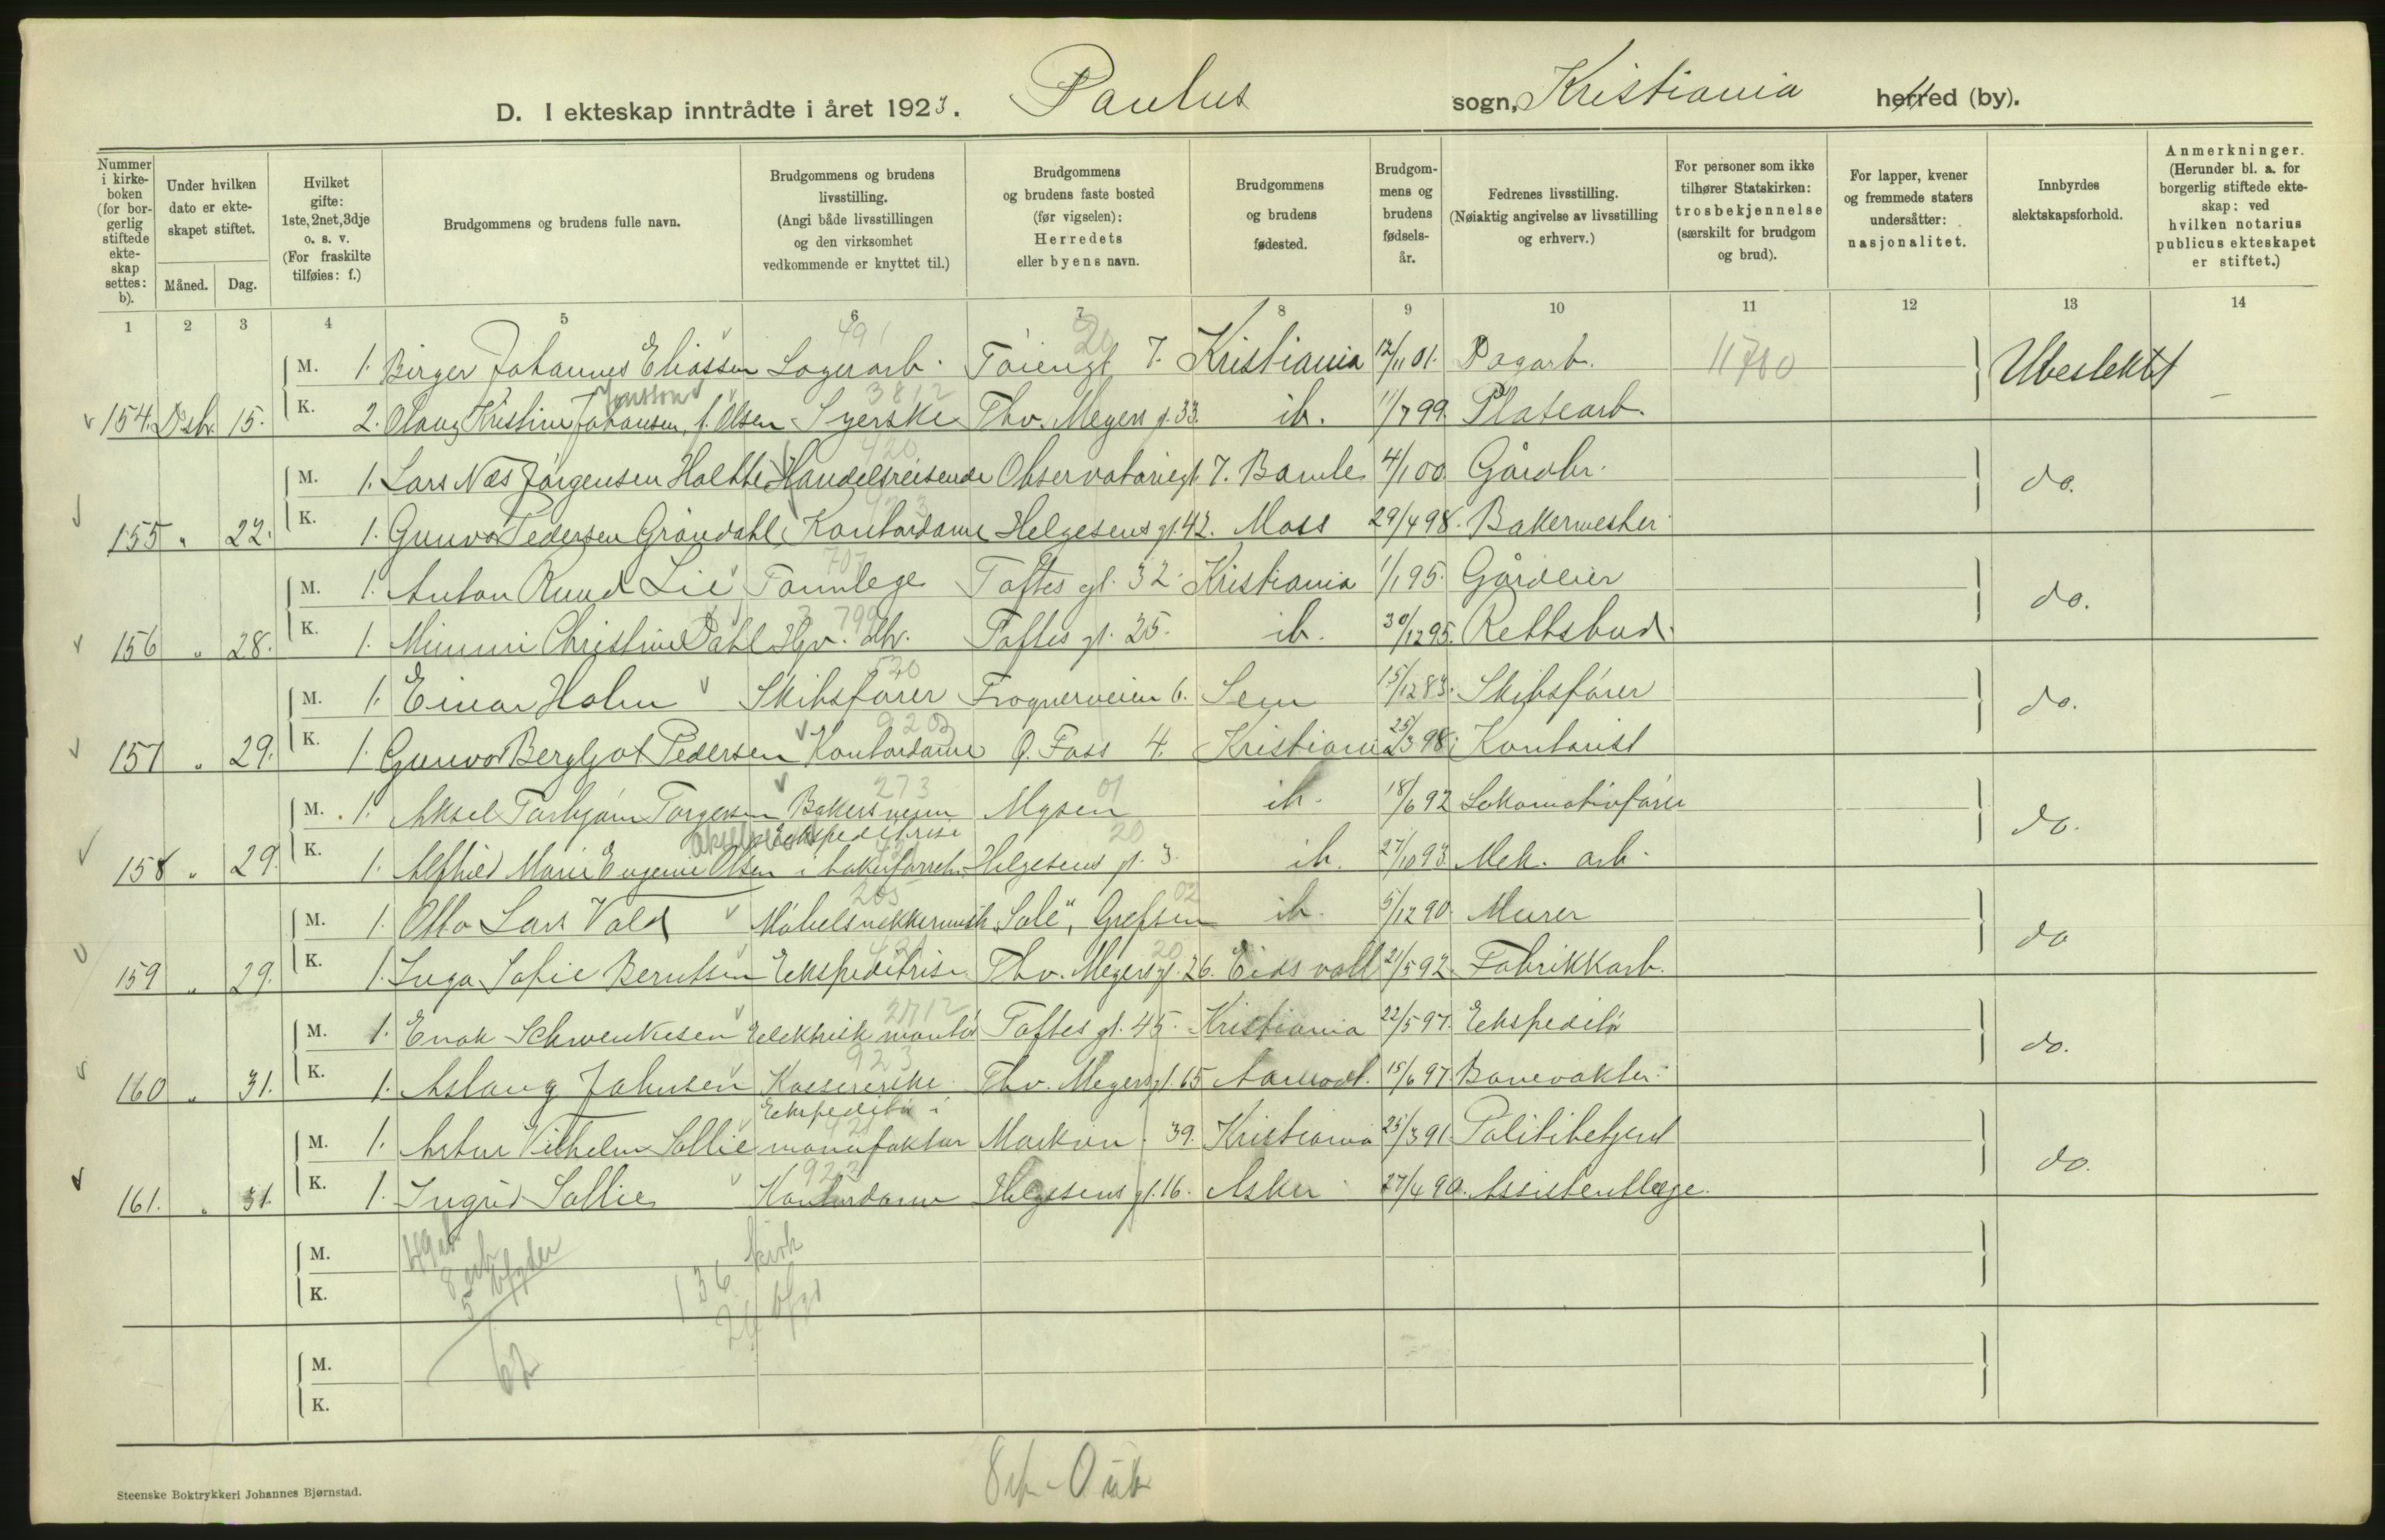 D. I ekteskap inntrådte i året 1923. Paulus sogn, Kristiania herred (by).
Nummer i kirkeboken (for borgerlig stiftede ekteskap settes: b).
Under hvilken dato er ekteskapet stiftet.
Måned. Dag.
Hvilket gifte: 1ste, 2net, 3dje o. s. v. (For fraskilte tilføies: f.)
Brudgommens og brudens fulle navn.
Brudgommens og brudens livsstilling. (Angi både livsstillingen og den virksomhet vedkommende er knyttet til.)
Brudgommens og brudens faste bosted (før vigselen): Herredets eller byens navn.
Brudgommens og brudens fødested.
Brudgommens og brudens fødselsår.
Fedrenes livsstilling. (Nøiaktig angivelse av livsstilling og erhverv.)
For personer som ikke tilhører Statskirken: trosbekjennelse (særskilt for brudgom og brud).
For lapper, kvener og fremmede staters undersåtter: nasjonalitet.
Innbyrdes slektskapsforhold.
Anmerkninger. (Herunder bl. a. for borgerlig stiftede ekteskap: ved hvilken notarius publicus ekteskapet er stiftet.)
1 2 3 4 5 6 7 8 9 10 11 12 13 14
M. 1. Birger Johannes Eliassen Lagerarb. Tøiengt 7. Kristiania 12/11 01. Pagarb. Ubeslektet
154. Dsbr. 15. K. 2. Olaug Kristine Johansen, f. Olsen Syerske Thv. Meyers g. 33. ib. 11/7 99. Platearb. —
M. 1. Lars Næs Jørgensen Holtte Handelsreisende Observatoriegt. 7. Bamle 4/1 00. Gårdbr. do.
155 " 22. K. 1. Gunvor Pedersen Grøndahl Kontordame Helgesens gt. 42. Moss 29/4 98. Bakermester
M. 1. Anton Ruud Lie Tannlege Toftes gt. 32. Kristiania 1/1 95. Gårdeier do.
156 " 28. K. 1. Mimmi Christine Dahl Hpv. db. Toftes gt. 25. ib. 30/12 95. Rettsbud.
M. 1. Einar Holm Skibsfører Frognerveien 6. Sem 15/12 83. Skibsfører do.
157 " 29. K. 1. Gunvor Bergljot Pedersen Kontordame Q. Foss 4. Kristiania 25/3 98. Kontorist
M. 1. Aksel Torbjørn Torgersen Bakersvenn Mysen ib. 18/6 92 Lokomotivfører do.
ekspeditrise
158 " 29. K. 1. Alfhild Marie Eugenie Olsen i bakerforretn. Helgesens gt. 3. ib. 27/10 93 Mek. arb.
M. 1. Otto Lars Vold Møbelsnekkermest. "Solë", Grefsen ib. 5/12 90 Murer do
159 " 29. K. 1. Inga Sofie Berntsen Ekspeditrise Thv. Meyers gt. 26. Eidsvoll 21/5 92. Fabrikkarb.
M. 1. Enok Schwenkesen Elektrisk montør Toftes gt. 45. Kristiania 22/5 97. Ekspeditør do.
160 " 31. K. 1. Aslaug Johnsen Kassererske Thv. Meyers gt. 65 15/6 97. Banevokter
Ekspeditør i
M. 1. Artur Vilhelm Sollie manufaktur Markvn. 39. Kristiania 25/3 91 Politibetjent do.
161. " 31. K. 1. Ingrid Sollie Kontordame Helgesens gt. 16. Asker 27/4 90. Assistentlæge.
M.
K.
136 kirk
M.
62
K.
Steenske Boktrykkeri Johannes Bjørnstad.